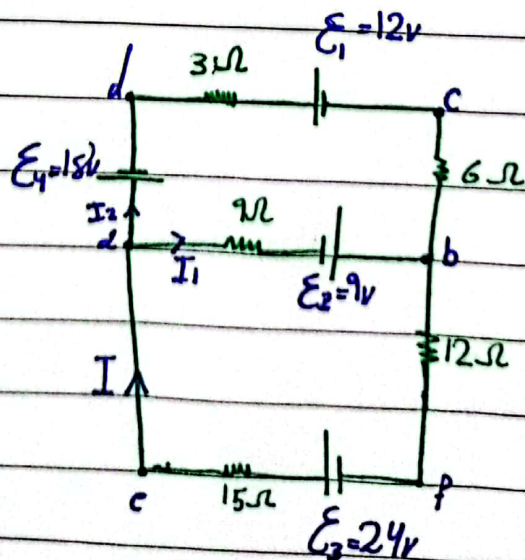 ε₁=12v
3Ω
d
c
ε₄=18v
6Ω
I₂
9Ω
a
b
I₁
ε₂=9v
12Ω
I
e
15Ω
f
ε₃=24v